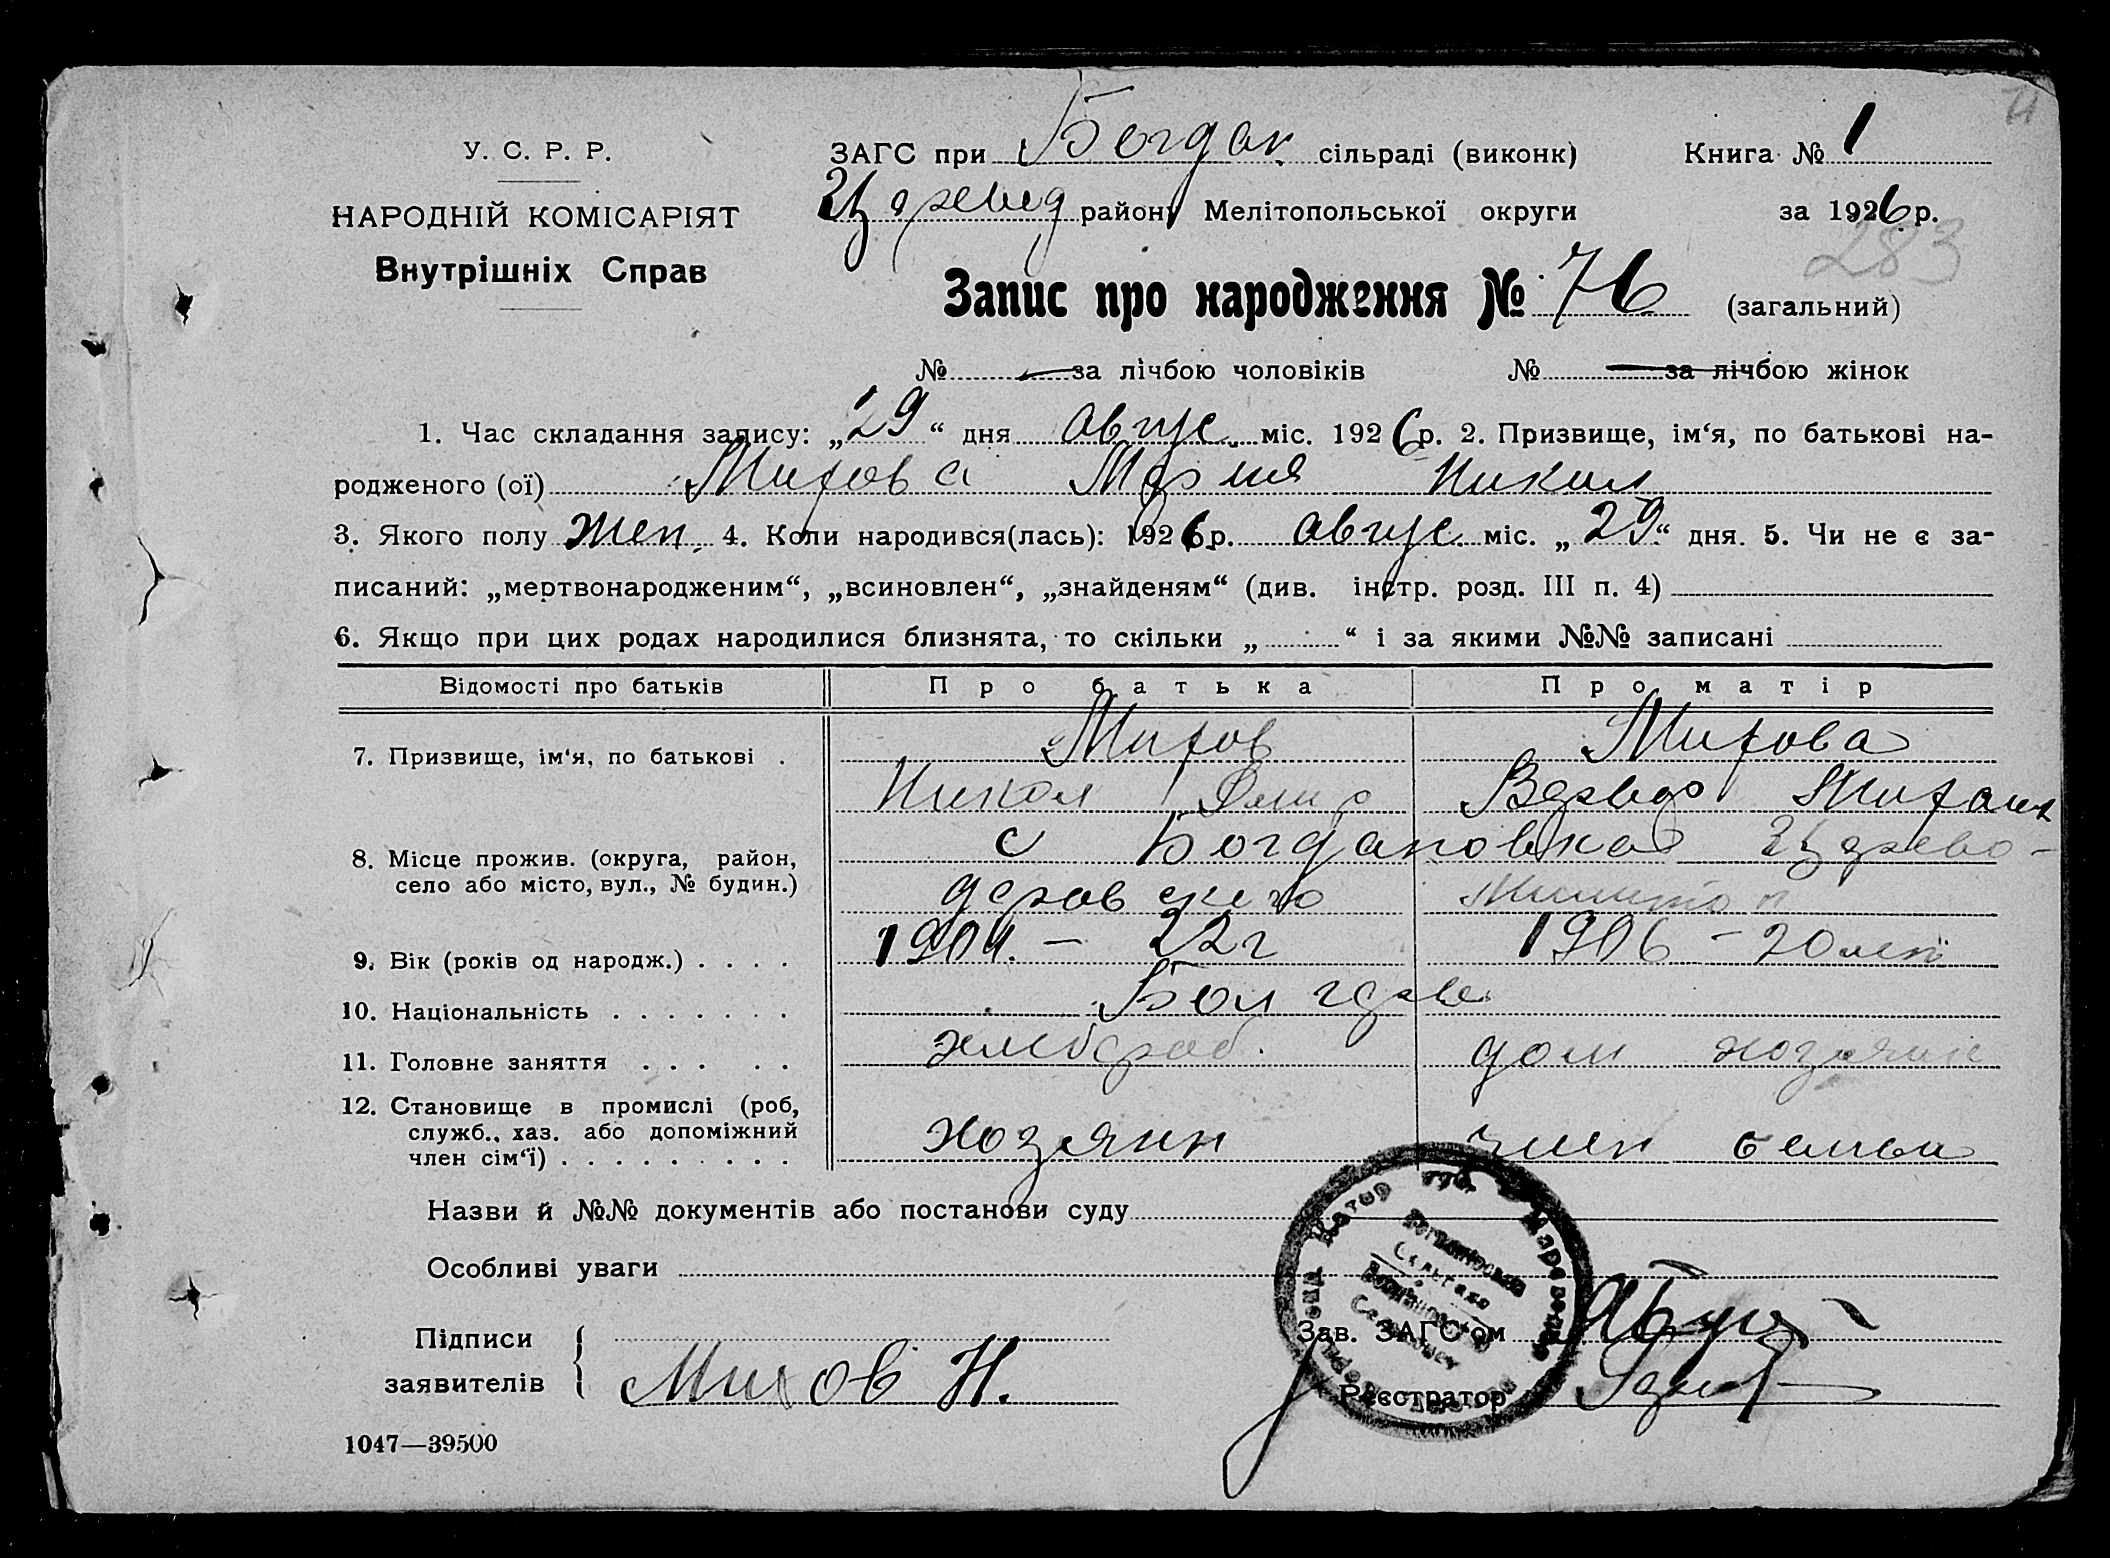 У. С. Р. Р.
НАРОДНІЙ КОМІСАРІЯТ
Внутрішніх Справ
ЗАГС при Богдан. сільраді (виконк) Книга № 1
Царевид району Мелітопольської округи за 1926 р.
283
Запис про народження № 76 (загальний)
№ за лічбою чоловіків № за лічбою жінок
1. Час складання запису: „29“ дня август. міс. 1926 р. 2. Призвище, ім‘я, по батькові на-
родженого (ої) Михова Мария Никол
3. Якого полу жен. 4. Коли народився(лась): 1926 р. август. міс. „29“ дня. 5. Чи не є за-
писаний: „мертвонародженим“, „всиновлен“, „знайденям“ (див. інстр. розд. III п. 4)
6. Якщо при цих родах народилися близнята, то скільки „ “ і за якими №№ записані
Відомості про батьків Про батька Про матір
7. Призвище, ім‘я, по батькові . Михов Михова
Никол Варвара
8. Місце прожив. (округа, район, с Богдановка Царево-
село або місто, вул., № будин.) даровского
9. Вік (років од народж.) . . . . 1904. – 22 г 1906 – 20 лет
10. Національність . . . . . . . Болгаре
11. Головне заняття . . . . . хлебороб. дом хозяйка
12. Становище в промислі (роб,
служб., хаз. або допоміжний хозяин член семьи
член сім‘ї) . . . . . . . . .
Назви й №№ документів або постанови суду
Особливі уваги
Підписи
заявителів Михов Н.
Зав. ЗАГС‘ом
Реєстратор
1047—39500